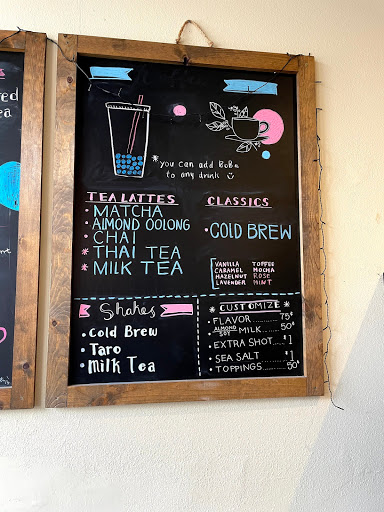 red
ea
*you can add boba
to any drink
TEA LATTES
• MATCHA
• ALMOND OOLONG
• CHAI
* THAI TEA
* MILK TEA
CLASSICS
• COLD BREW
VANILLA TOFFEE
CARAMEL MOCHA
HAZELNUT ROSE
LAVENDER MINT
Shakes
• Cold Brew
• Taro
• Milk Tea
* CUSTOMIZE *
• FLAVOR 75¢
• ALMOND SOY MILK 50¢
• EXTRA SHOT $1
• SEA SALT $1
• TOPPINGS 50¢